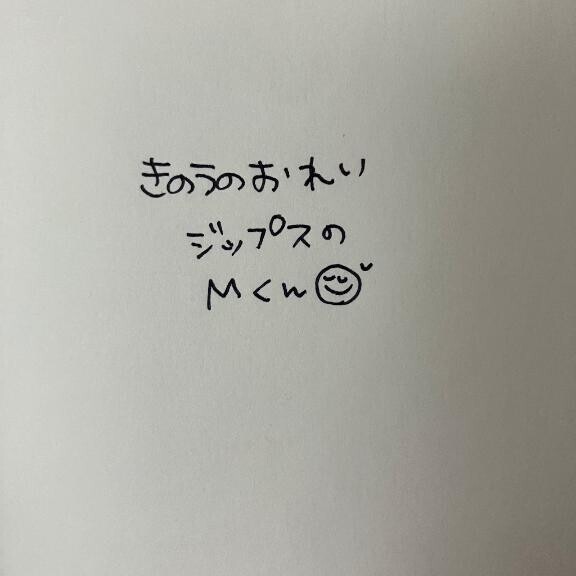 きのうのおれい
ジップスの
Mくん